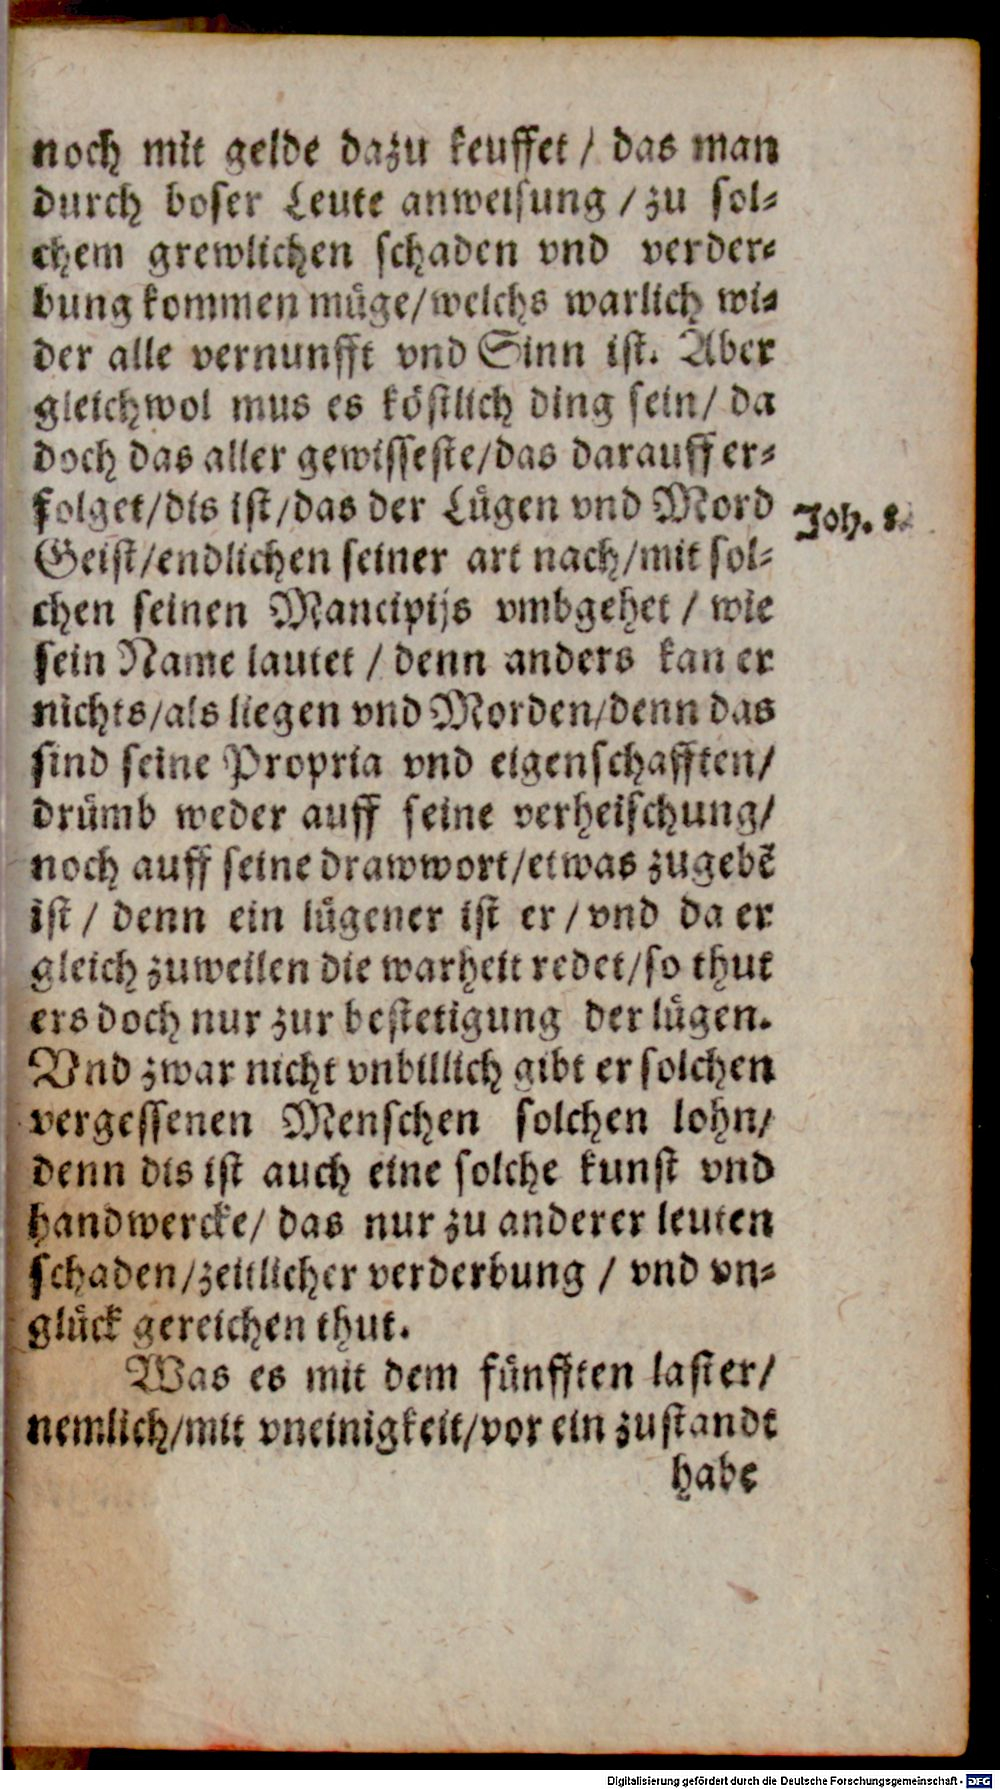 noch mit gelde dazu keuffet / das man
durch boser Leute anweisung / zu sol-
chem grewlichen schaden vnd verder-
bung kommen müge/welchs warlich wi-
der alle vernunfft vnd Sinn ist. Aber
gleichwol mus es köstlich ding sein/ da
doch das aller gewisseste/das darauff er-
folget/dis ist/das der Lügen vnd Mord
Joh. 8.
Geist/endlichen seiner art nach/mit sol-
chen seinen Mancipijs vmbgehet / wie
sein Name lautet / denn anders kan er
nichts/als liegen vnd Morden/denn das
sind seine Propria vnd eigenschafften/
drümb weder auff seine verheischung/
noch auff seine drawwort/etwas zugebē
ist / denn ein lügener ist er / vnd da er
gleich zuweilen die warheit redet/so thut
ers doch nur zur bestetigung der lügen.
Vnd zwar nicht vnbillich gibt er solchen
vergessenen Menschen solchen lohn/
denn dis ist auch eine solche kunst vnd
handwercke/ das nur zu anderer leuten
schaden/zeitlicher verderbung / vnd vn-
glück gereichen thut.
Was es mit dem fünfften laster/
nemlich/mit vneinigkeit/vor ein zustandt
habe
Digitalisierung gefördert durch die Deutsche Forschungsgemeinschaft - DFG